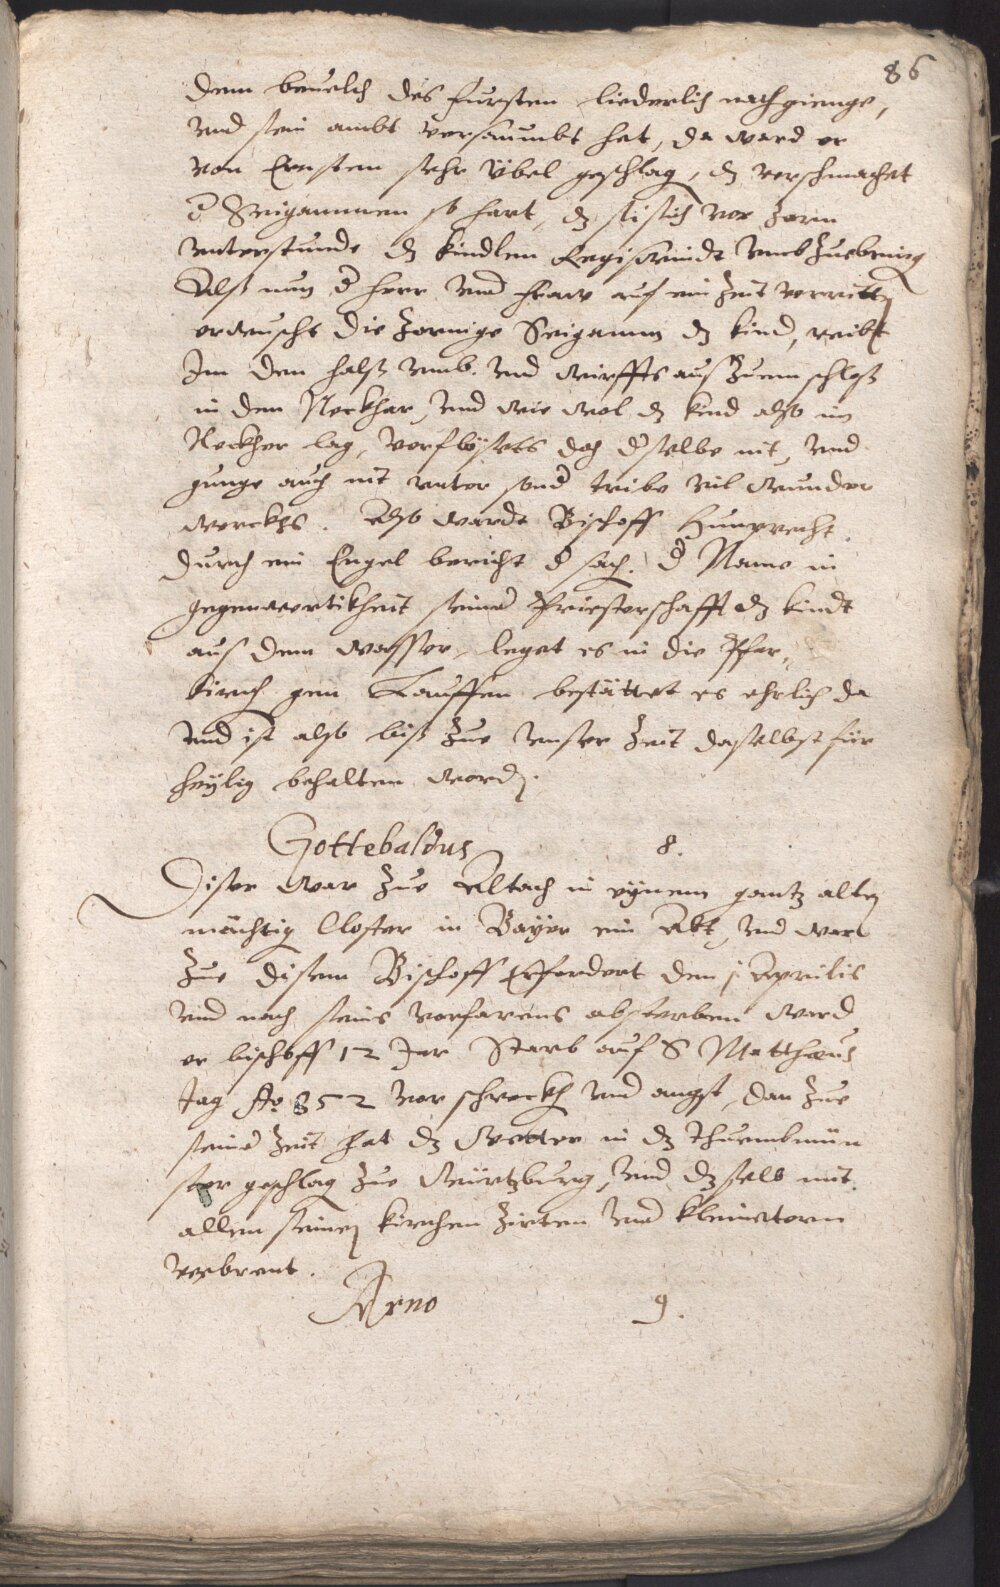 86
dem beuelch des fursten liederlich nachgienge,
vnd sein ambt versaumbt hat, da ward er
von Ernsten sehr übel geschlag, dz verschmachet
d Seigammen so hart, dz si sich vor zorn
vnterstunde dz kindlen Regiswindt vmbzuebring
Alß nun d herr vnd fraw auf ein Zeit verritt
erwuscht die zornige Seigamm dz kind, reibt
Im den halß vmb. vnd wirffts aus zum schloß
in den Neckhar, vnd wie wol dz kind also im
Neckher lag, verflösets doch dselbe nit, vnd
gunge auch nit vnter sond tribe vil wunder
werckhs. Also warde Bischoff Hunprecht
durch ein Engel bericht d sach. d Name in
gegenwertikheit seind Priesterschafft dz kindt
aus dem wasser, leget es in die Pfar,
kirch gen Lauffen bestättet es ehrlich da
vnd ist also biß zue vnser Zeit daselbst für
heylig behalten word.
Gottebaldus 8.
Diser war Zue Altach in eynem gantz alten
mächtig Closter in Bayer ein Abt, vnd ward
Zue disem Bischoff Erfordert den j Aprilis
vnd nach seins vorfarens absterben ward
er bischoff 12 Jar Starb auf S Matthaus
tag Ao 852 vor schreckh vnd angst, dan Zue
seind Zeit hat dz Wetter in dz Thuembmün
ster geschlag zue Würtzburg, vnd dzselb mit
allen seinen kirchen Zirten vnd kleinatern
verbrent.
Arno 9.